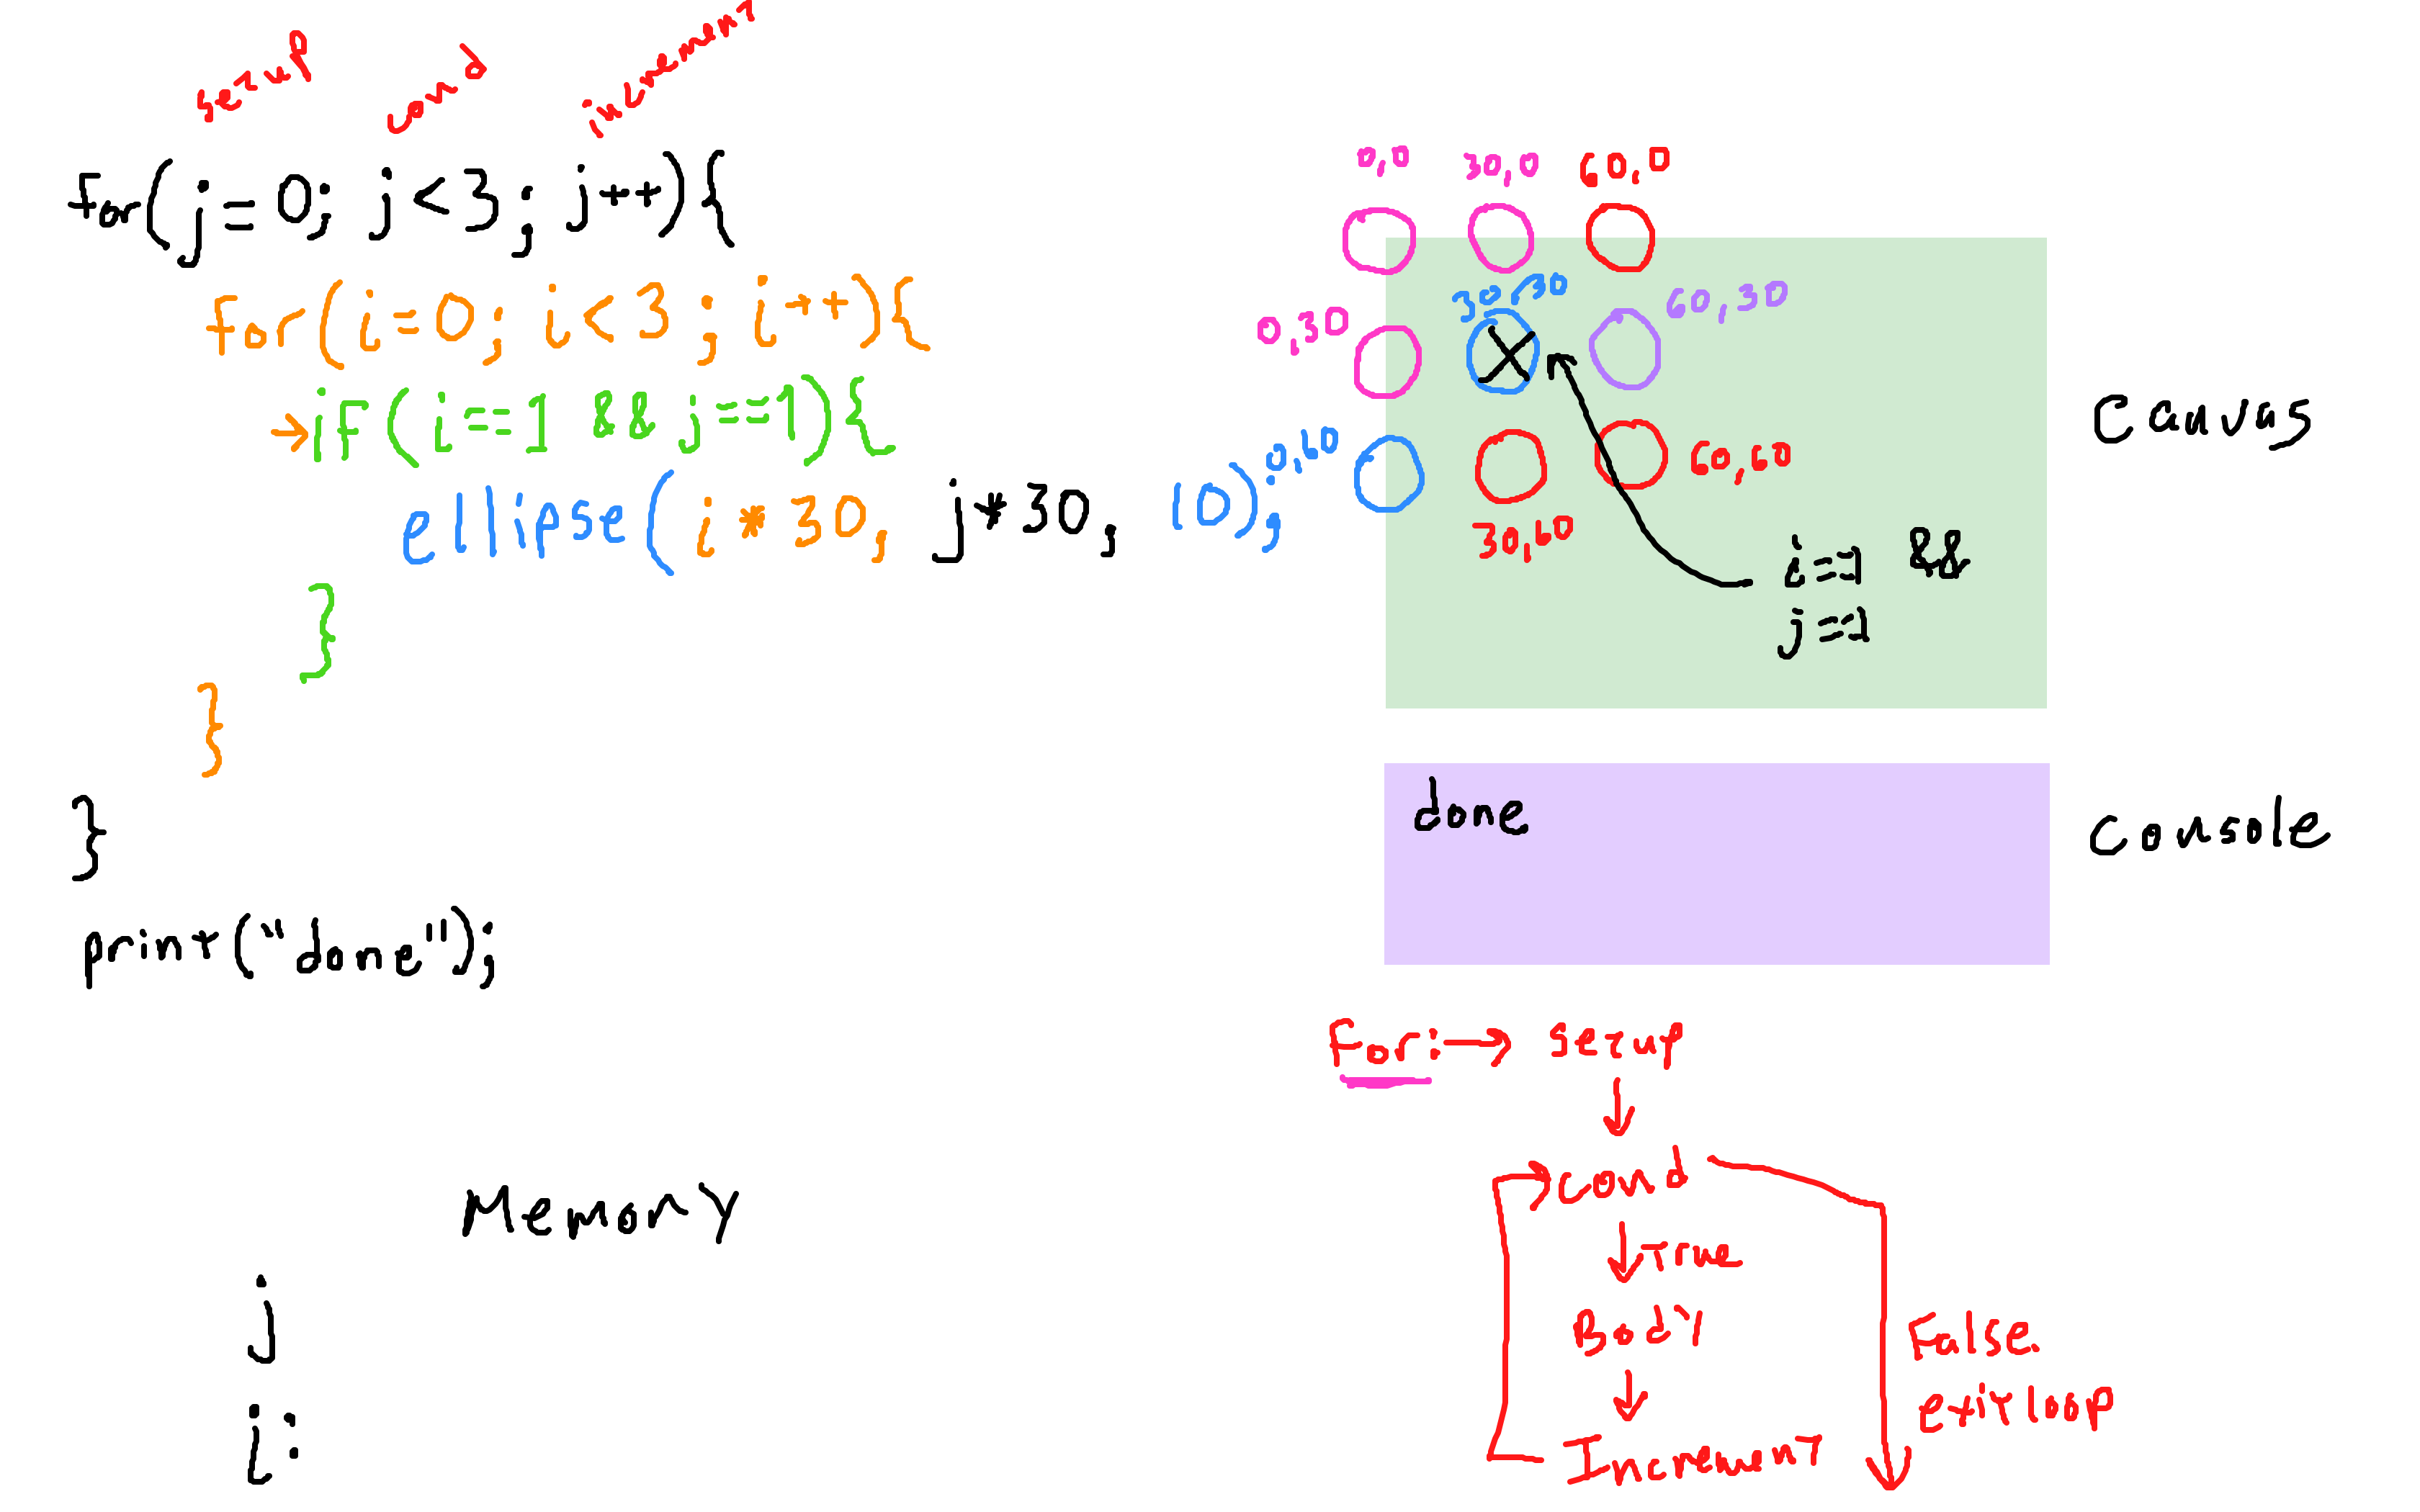 setup cond increment
for(j=0; j<3; j++){
for(i=0; i<3; i++){
→if(i==1 && j==1){
ellipse(i*30, j*30, 10);
}
}
}
print("done");
Memory
j
i:
0,0 30,0 60,0
0,30 30,30 60,30
0,60
30,60 60,60
i==1 &&
j==1
Canvas
done
Console
For:→ setup
cond
True
Body
Increment
False
exit loop